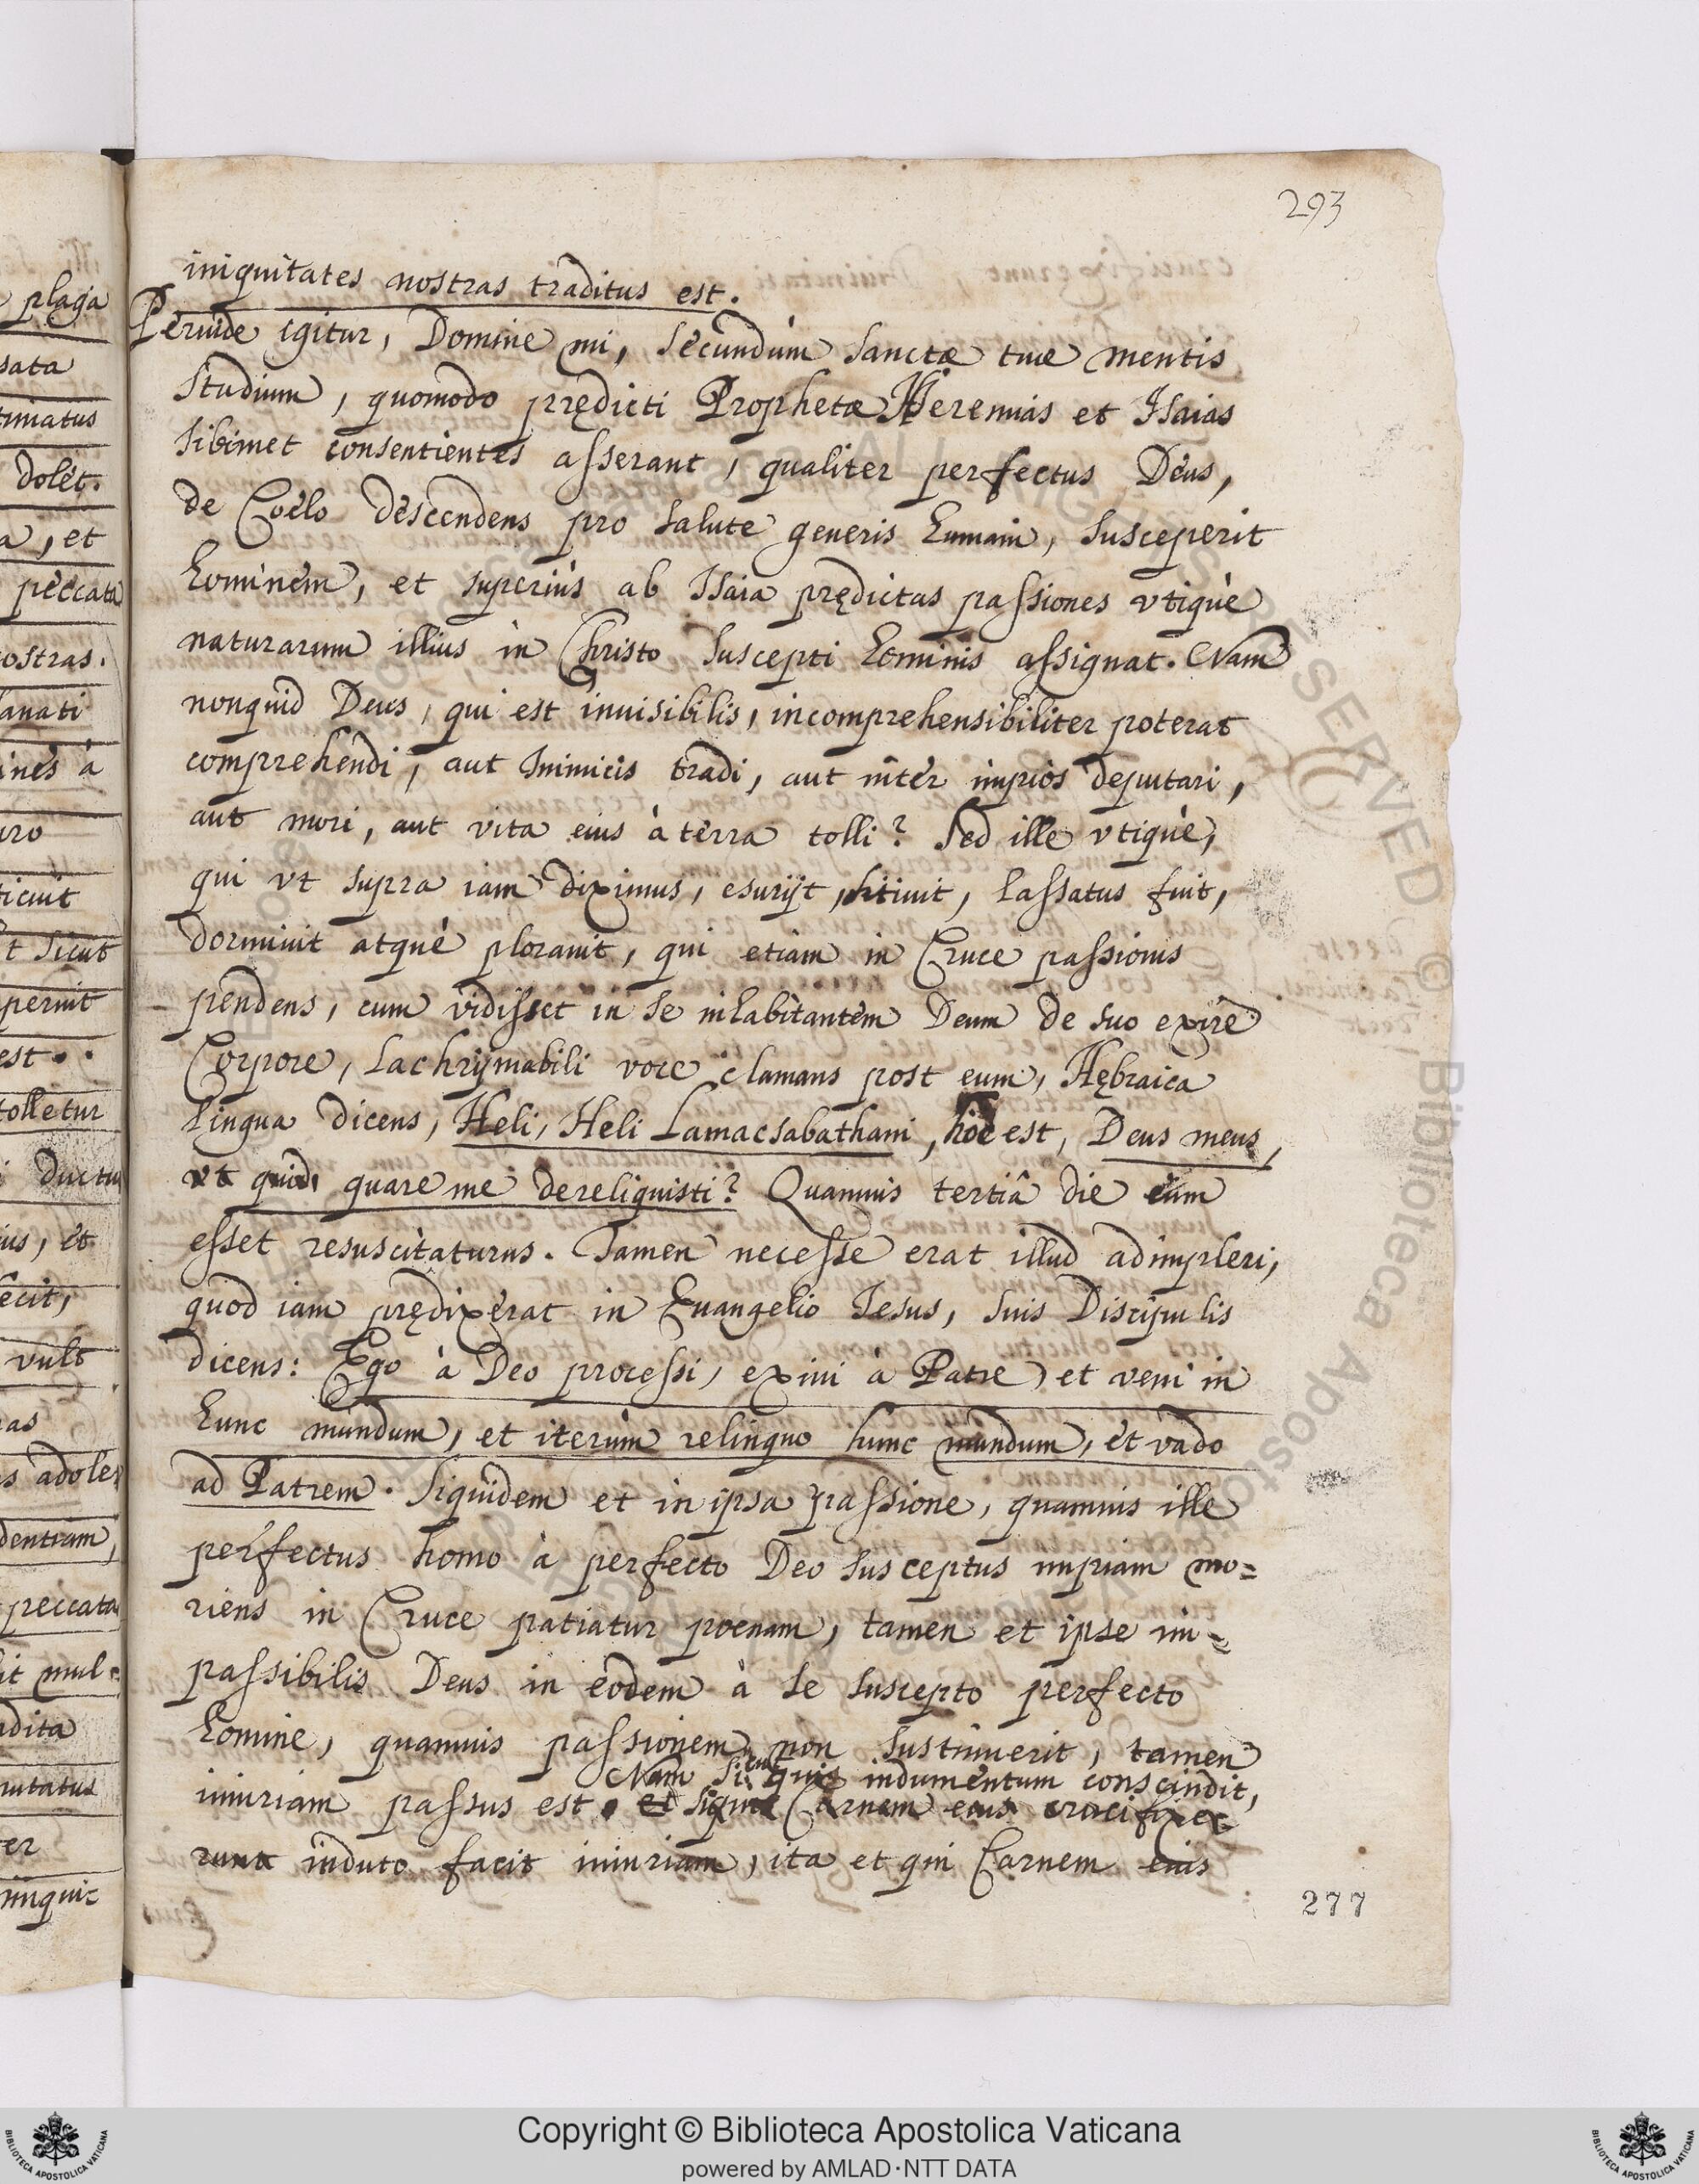 293
iniquitates nostras traditus est.
Peruide igitur, Domine mi, secundùm sanctæ tuæ mentis
studium, quomodo prędicti Prophetæ Hieremias et Isaias
sibimet consentientes asserant, qualiter perfectus Deus,
de Coelo descendens pro salute generis humani, susceperit
hominem, et superiùs ab Isaia prędictas passiones vtiquè
naturarum illius in Christo suscepti hominis assignat. Nam
nonquid Deus, qui est inuisibilis, incomprehensibiliter poterat
comprehendi, aut Inimicis tradi, aut intèr impios deputari,
aut mori, aut vita eius à terra tolli? Sed ille vtiquè,
qui vt supra iam diximus, esurijt, sitiuit, lassatus fuit,
dormiuit atquè plorauit, qui etiam in Cruce passionis
pendens, cum vidisset in se inhabitantem Deum de suo exire
Corpore, lachrymabili voce clamans post eum, Hębraica
lingua dicens, Heli, Heli Lamacsabathani, hoc est, Deus meus,
vt quid, quare me dereliquisti? Quamuis tertiâ die eum
esset resuscitaturus. Tamen necesse erat illud adimpleri,
quod iam prędixerat in Euangelio Iesus, suis Discipulis
dicens: Ego à Deo processi, exiui à Patre, et veni in
hunc mundum, et iterùm relinquo hunc mundum, et vado
ad Patrem. Siquidem et in ipsa passione, quamuis ille
perfectus homo à perfecto Deo susceptus impiam mo=
riens in Cruce patiatur poenam, tamen et ipse im=
passibilis Deus in eodem à se suscepto perfecto
homine, quamuis passionem non sustinuerit, tamen
Nam sicut quis indumentum conscindit,
iniuriam passus est. et Carnem eius crucifixe=
runt induto facit iniuriam, ita et qui Carnem eius
277
plaga
sata
timatus
dolet.
a, et
peccata
nostras.
sanati
ines à
uro
ticuit
t sicut
peruit
est.
tolletur
i ductu
ius, et
fecit,
vult
ras
s adole
dentiam,
peccata
it mul=
rdita
putatus
er
inquic
Eius
© Biblioteca Apostolica Vaticana
Copyright © Biblioteca Apostolica Vaticana
powered by AMLAD·NTT DATA
BIBLIOTECA APOSTOLICA VATICANA
BIBLIOTECA APOSTOLICA VATICANA